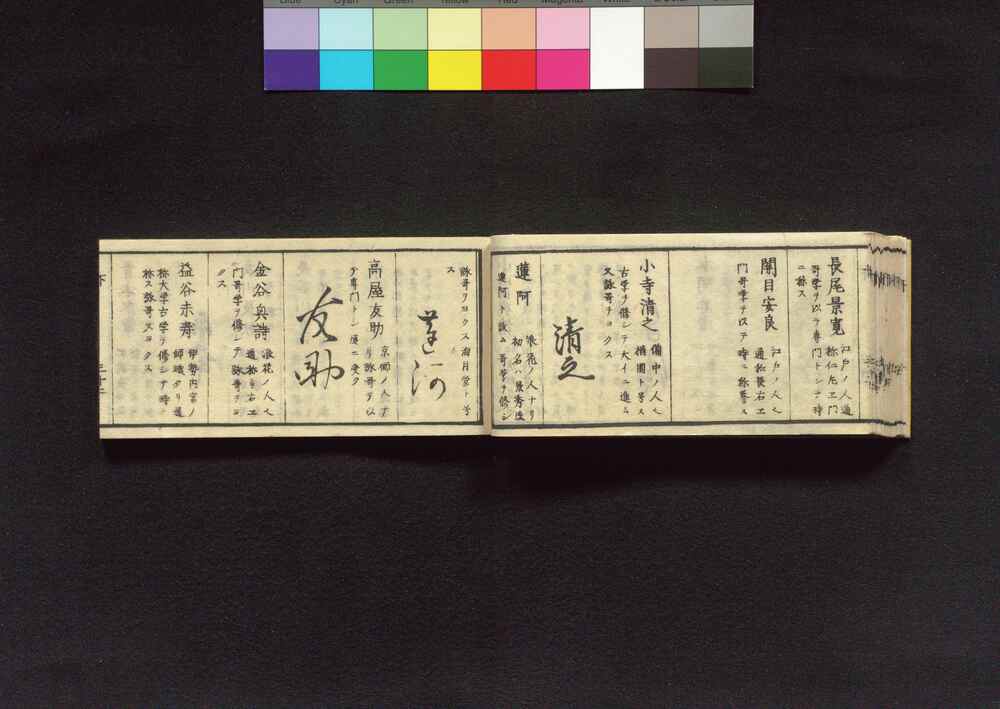 Blue Cyan Green Yellow Red Magenta White
長尾景寛 江戸ノ人通
称仁左ヱ門
哥学ヲ以テ専門トシテ時
ニ称ス
闇目安良 江戸ノ人也
通称長右ヱ
門哥学ヲ以テ時ニ称誉ス
小寺清之 備中ノ人也
楢園ト号ス
古学ヲ修シテ大イニ進ム
又詠哥ヲヨクス
清之
蓮阿 浪花ノ人ナリ
蓮阿ト改ム哥学ヲ修シ
詠哥ヲヨクス
月堂ト号
ス
蓮阿
高屋友助 京師ノ人ナ
リ詠哥ヲ以
テ専門トシ
友助
金谷興詩 浪花ノ人也
通称与右ヱ
門哥学ヲ修シテ詠哥ヲヨ
クス
益谷末寿 伊勢内宮ノ
師職タリ通
称大学古学ヲ修シテ時ニ
称ス詠哥又ヨクス